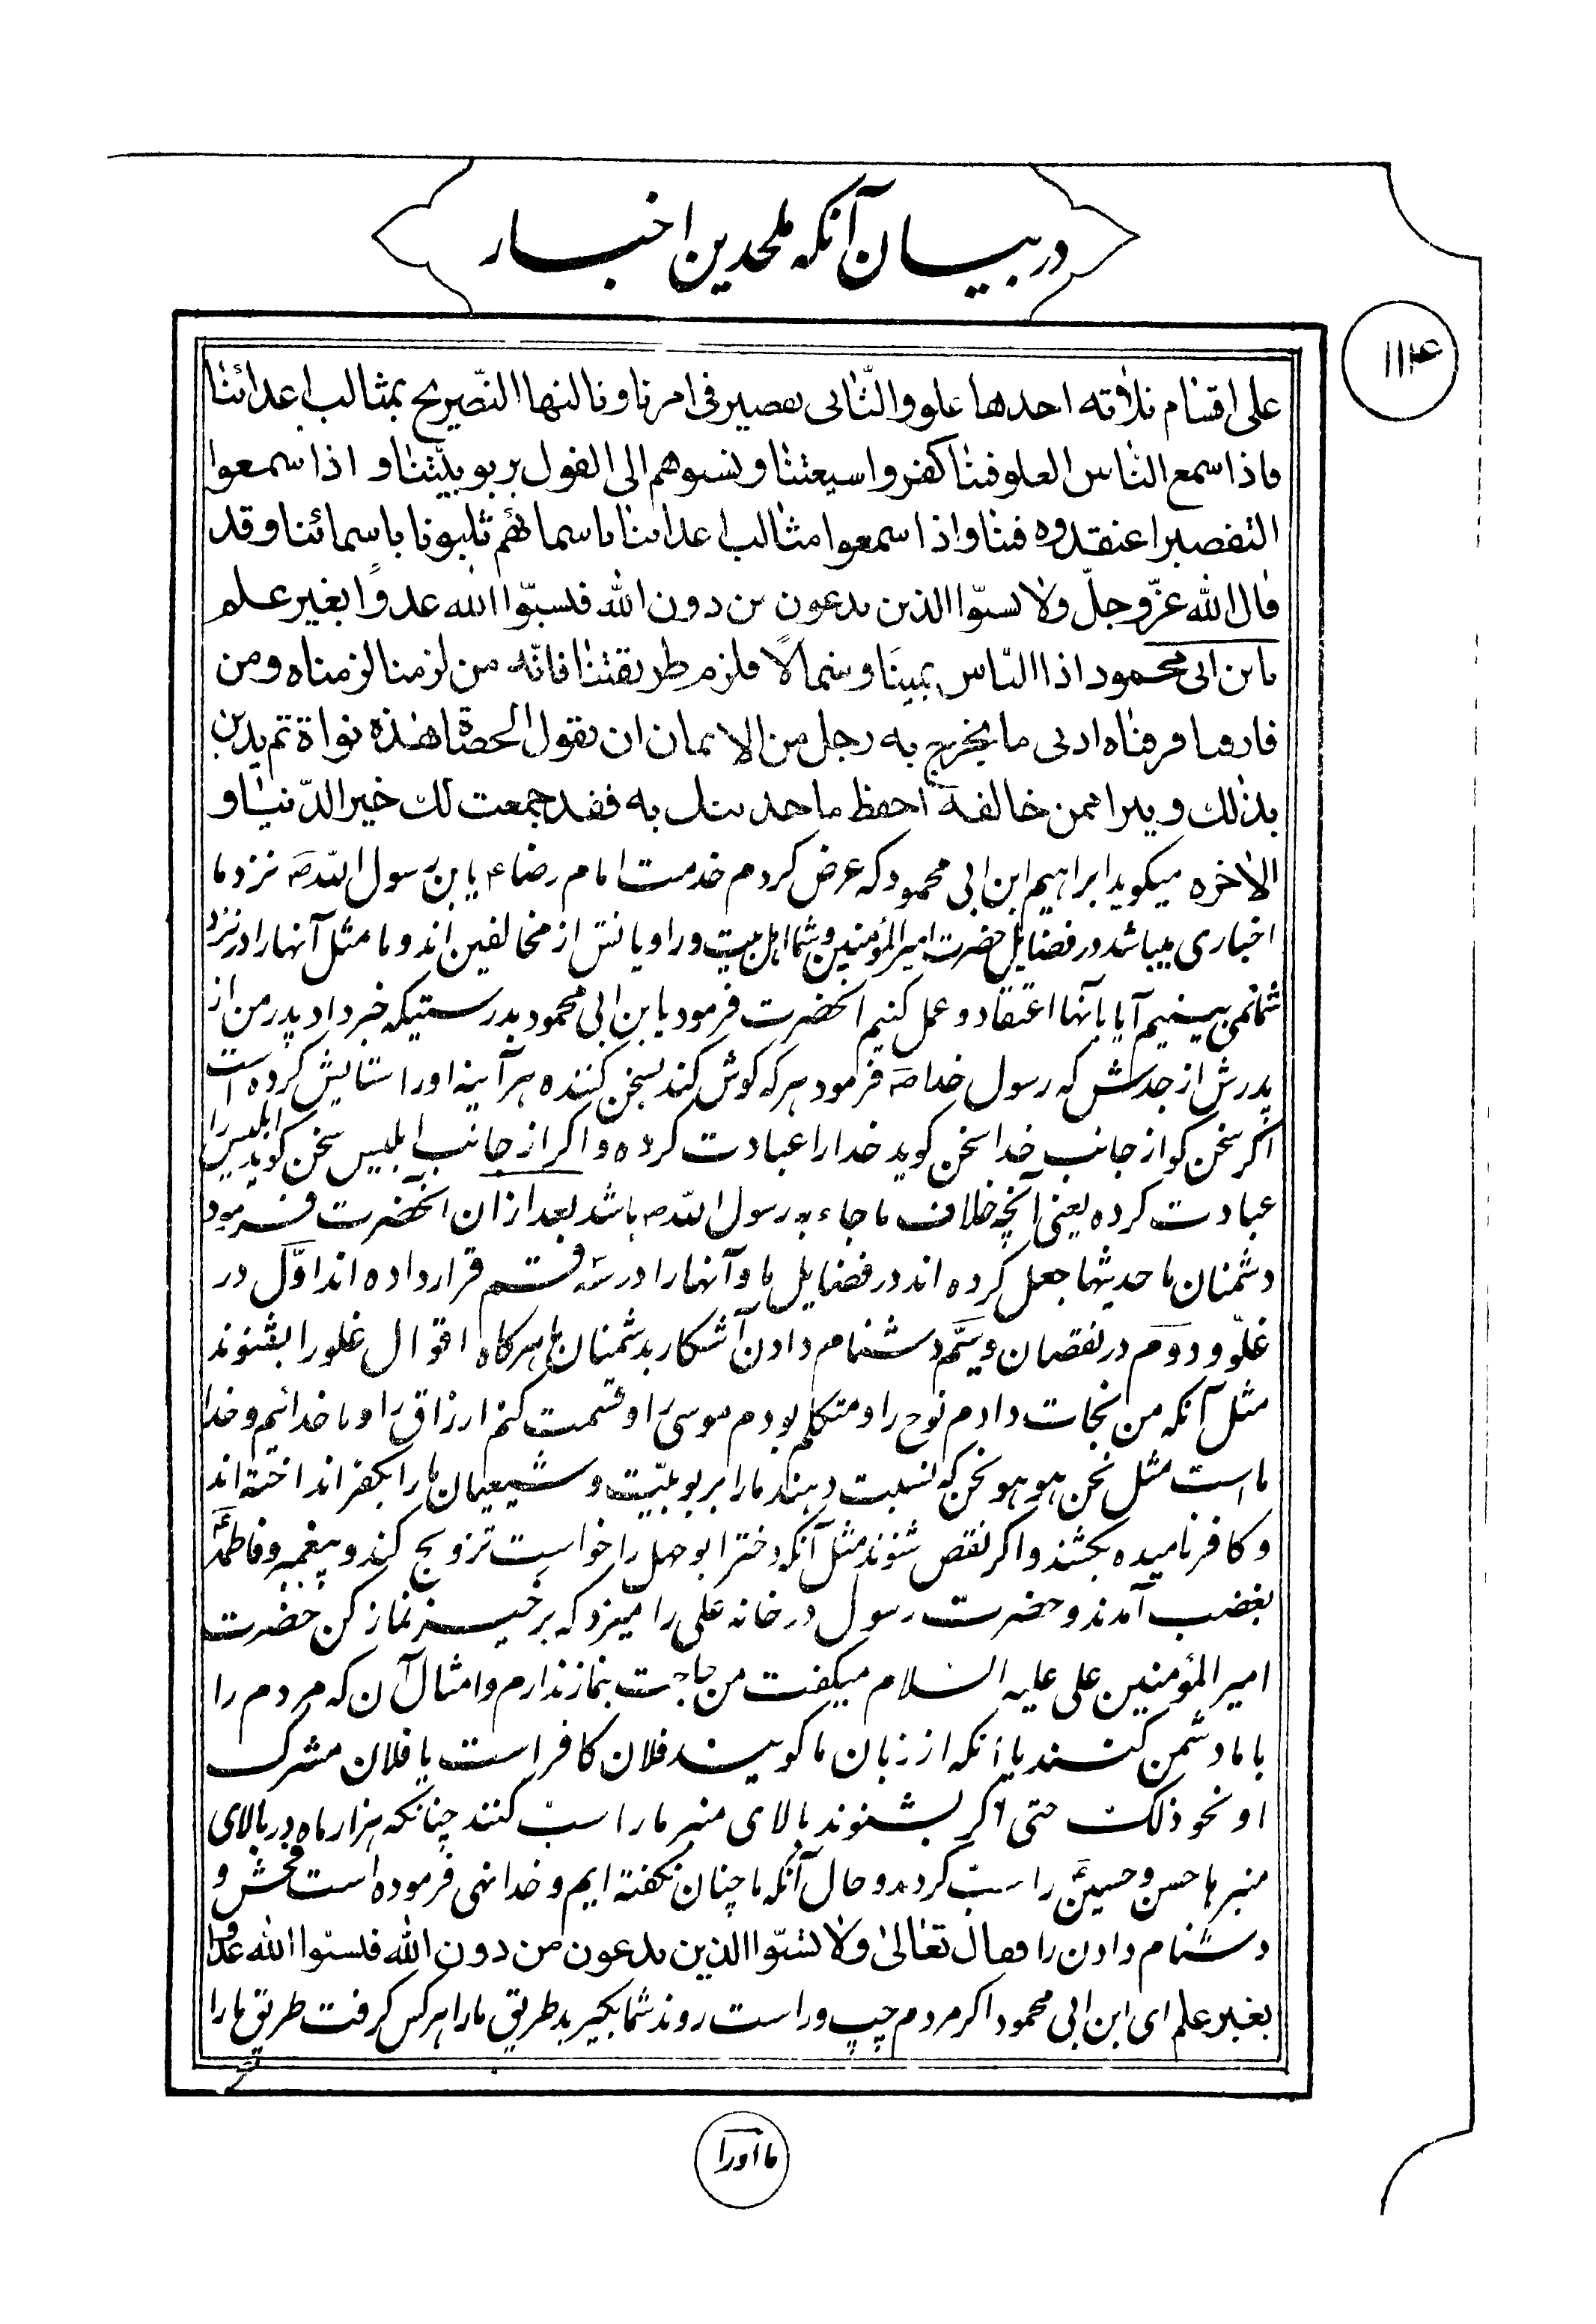 در بیان آنکه ملحدین اخبار
۱۱۴
علی اقسام ثلاثه احدها غلو والثّانی تقصیر فی امرنا وثالثها التّصریح بمثالب اعدائنا
فاذا سمع النّاس الغلو فینا کفروا شیعتنا ونسبوهم الی القول بربوبیّتنا و اذا سمعوا
التقصیر اعتقدوه فینا واذا سمعوا مثالب اعدائنا باسمائهم ثلبونا باسمائنا وقد
قال الله عزّوجلّ ولا تسبّوا الذین یدعون من دون الله فیسبّوا الله عدوًا بغیر علم
یابن ابی محمود اذا النّاس یمینًا وشمالًا فلزم طریقتنا فانّه من لزمنا لزمناه ومن
فارقنا فرقناه ادنی ما یخرج به رجل من الایمان ان یقول الحصاة هذه نواة ثم یدین
بذلك ویبرا ممن خالفه احفظ ما حدثتك به فقد جمعت لك خیر الدّنیا و
الاخره میکوید ابراهیم ابن ابی محمود که عرض کردم خدمت امام رضا ع یابن رسول اللّه ص نزد ما
اخباری میباشد در فضایل حضرت امیرالمؤمنین وشما اهل بیت وراویانش از مخالفین اند وما مثل آنها را در نزد
شما نمی بینیم آیا بآنها اعتقاد و عمل کنیم انحضرت فرمود یابن ابی محمود بدرستیکه خبر داد پدر من از
پدرش از جدش که رسول خدا ص فرمود هرکه کوش کند بسخن کننده هرآینه او را ستایش کرده است
اکر سخن کو از جانب خدا سخن کوید خدا را عبادت کرده و اکر از جانب ابلیس سخن کوید ابلیس را
عبادت کرده یعنی آنچه خلاف ما جاء به رسول اللّه ص باشد بعد از ان انحضرت فرمود
دشمنان ما حدیثها جعل کرده اند در فضایل ما و آنها را در سه قسم قرار داده اند اوّل در
غلّو و دوّم در نقصان وسیّم دشنام دادن آشکار بدشمنان ما هرکاه اقوال غلو را بشنوند
مثل آنکه من نجات دادم نوح را ومتکلم بودم موسی را وقسمت کنم ارزاق را وما خدائیم وخدا
ما است مثل نحن هو هو نحن که نسبت دهند ما را بربوبیّت و شیعیان ما را بکفر انداخته اند
وکافر نامیده بکشند واکر نقص شنوند مثل آنکه دختر ابوجهل را خواست تزویج کند وپیغمبر وفاطمه ع
بغضب آمدند وحضرت رسول در خانه علی را میزد که برخیز نماز کن حضرت
امیرالمؤمنین علی علیه السّلام میکفت من حاجت بنماز ندارم وامثال آن که مردم را
با ما دشمن کنند یا آنکه از زبان ما کویند فلان کافر است یا فلان مشرک
او نحو ذلک حتی اکر بشنوند بالای منبر ما را سبّ کنند چنانکه هزار ماه در بالای
منبرها حسن وحسین ع را سبّ کردند وحال آنکه ما چنان نکفته ایم وخدا نهی فرموده است فحش و
دشنام دادن را فقال تعالی ولا تسبّوا الذین یدعون من دون الله فیسبّوا الله عدوًا
بغیر علم ای ابن ابی محمود اکر مردم چپ وراست روند شما بکیرید طریق ما را هرکس کرفت طریق ما را
ما او را